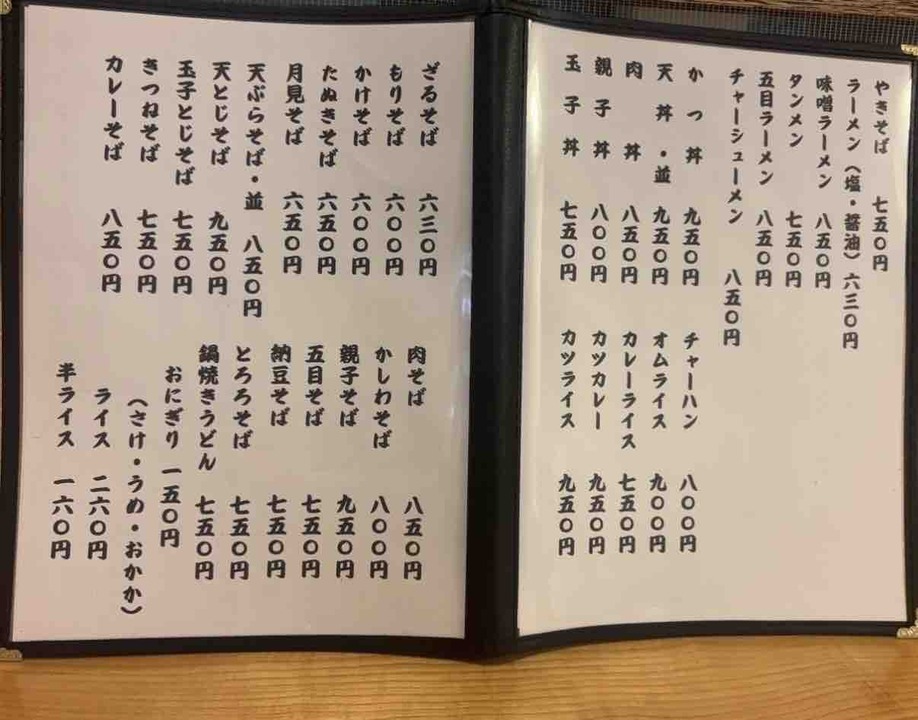 やきそば 七五〇円
ラーメン（塩・醤油）六三〇円
味噌ラーメン 八五〇円
タンメン 七五〇円
五目ラーメン 八五〇円
チャーシューメン 八五〇円
かつ丼 九五〇円
天丼・並 九五〇円
肉丼 八五〇円
親子丼 八〇〇円
玉子丼 七五〇円
チャーハン 八〇〇円
オムライス 九〇〇円
カレーライス 七五〇円
カツカレー 九五〇円
カツライス 九五〇円
ざるそば 六三〇円
もりそば 六〇〇円
かけそば 六〇〇円
たぬきそば 六五〇円
月見そば 六五〇円
天ぷらそば・並 八五〇円
天とじそば 九五〇円
玉子とじそば 七五〇円
きつねそば 七五〇円
カレーそば 八五〇円
肉そば 八五〇円
かしわそば 八〇〇円
親子そば 九五〇円
五目そば 七五〇円
納豆そば 七五〇円
とろろそば 七五〇円
鍋焼きうどん 七五〇円
おにぎり 一五〇円
（さけ・うめ・おかか）
ライス 二六〇円
半ライス 一六〇円